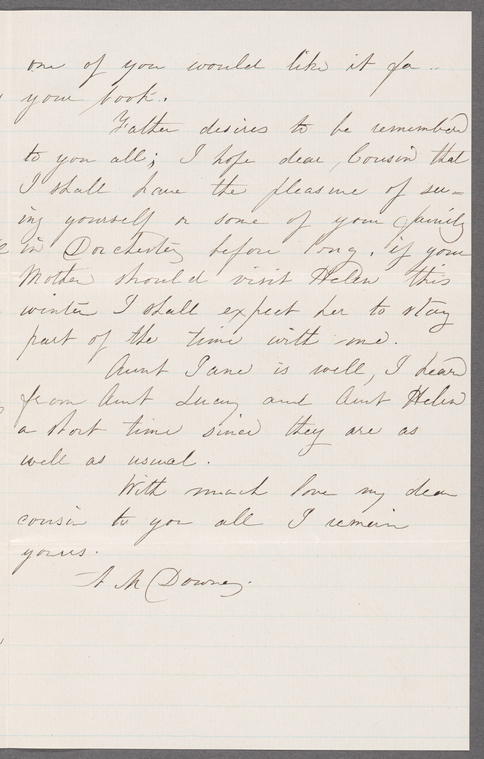 one of you would like it for
your book.
Father desires to be remembered
to you all; I hope dear Cousin that
I shall have the pleasure of see-
ing yourself or some of your family
in Dorchester before long. if your
Mother should visit Helen this
winter I shall expect her to stay
part of the time with me.
Aunt Jane is well, I heard
from Aunt Lucy and Aunt Helen
a short time since they are as
well as usual.
With much love my dear
cousin to you all I remain
yours.
A M Downer.